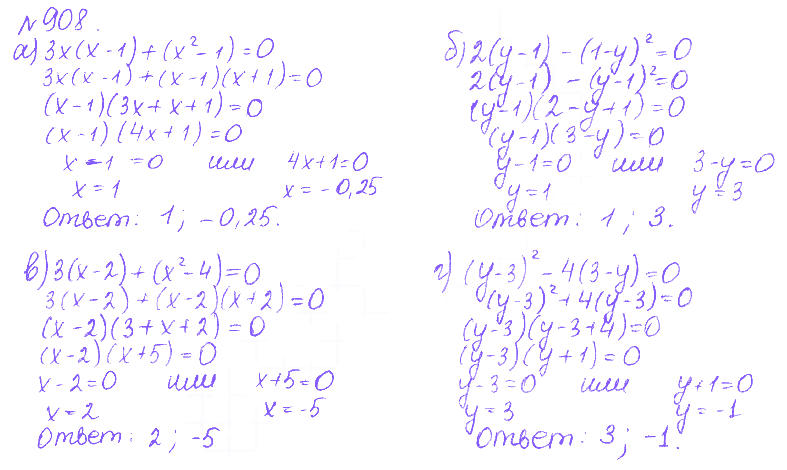 № 908.
а) 3x(x-1)+(x²-1)=0
3x(x-1)+(x-1)(x+1)=0
(x-1)(3x+x+1)=0
(x-1)(4x+1)=0
x-1=0 или 4x+1=0
x=1 x=-0,25
Ответ: 1; -0,25.
б) 2(y-1)-(1-y)²=0
2(y-1)-(y-1)²=0
(y-1)(2-y+1)=0
(y-1)(3-y)=0
y-1=0 или 3-y=0
y=1 y=3
Ответ: 1; 3.
в) 3(x-2)+(x²-4)=0
3(x-2)+(x-2)(x+2)=0
(x-2)(3+x+2)=0
(x-2)(x+5)=0
x-2=0 или x+5=0
x=2 x=-5
Ответ: 2; -5
г) (y-3)²-4(3-y)=0
(y-3)²+4(y-3)=0
(y-3)(y-3+4)=0
(y-3)(y+1)=0
y-3=0 или y+1=0
y=3 y=-1
Ответ: 3; -1.